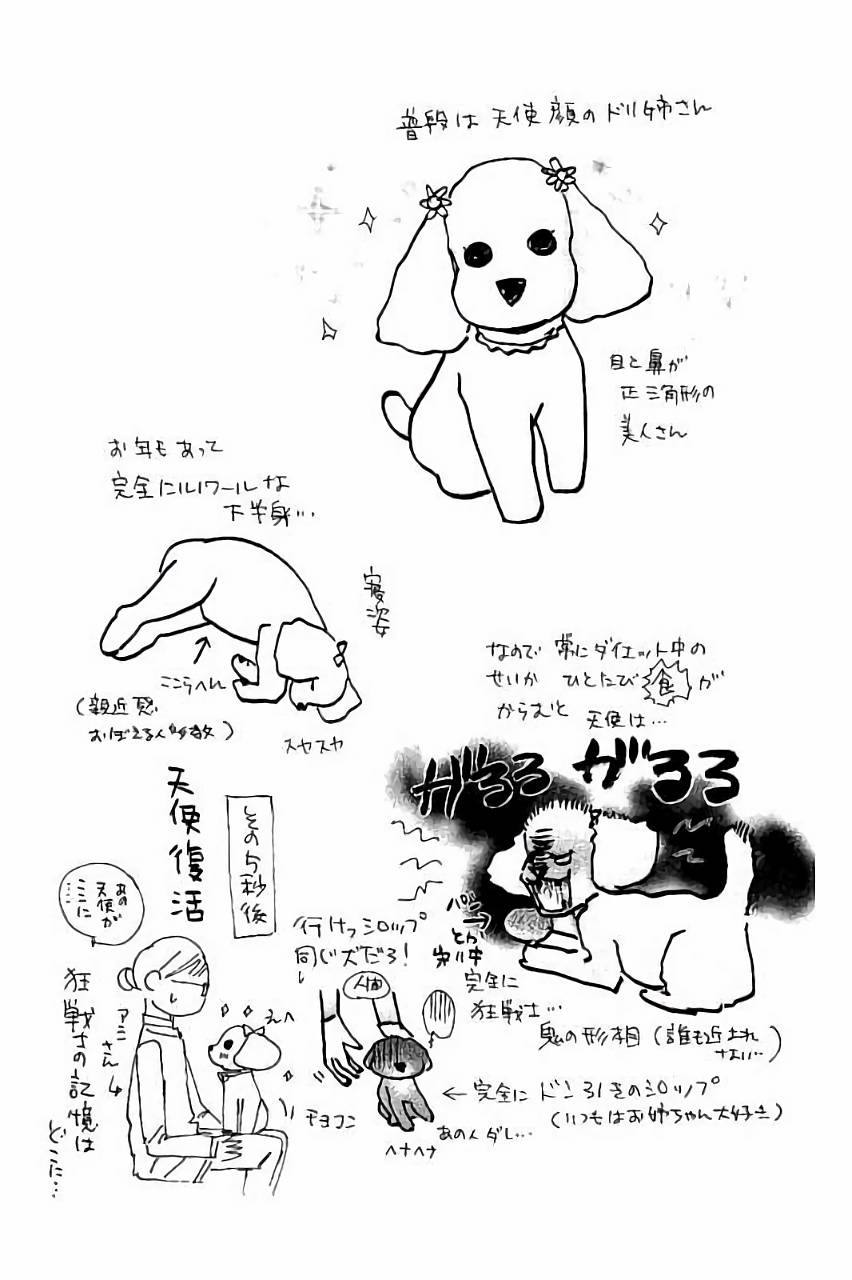 普段は天使顔のドリ姉さん
目と鼻が
正三角形の
美人さん
お年もあって
完全にルノワールな
下半身…
寝姿
ここらへん
(親近感
おぼえる人多数)
スヤスヤ
なので常にダイエット中の
せいか ひとたび食が
からむと 天使は…
がるる がるる
パン
とか
完全に
狂戦士…
鬼の形相(誰も近よれ
ない…)
行けっシロップ
同じ犬だろ!
人間
←完全にドン引きのシロップ
(いつもはお姉ちゃん大好き)
あの人ダレ…
ヘナヘナ
その5秒後
天使復活
あの
天使が
ミミに
アミさん
えへ
チョコン
狂戦士の記憶は
どこに…